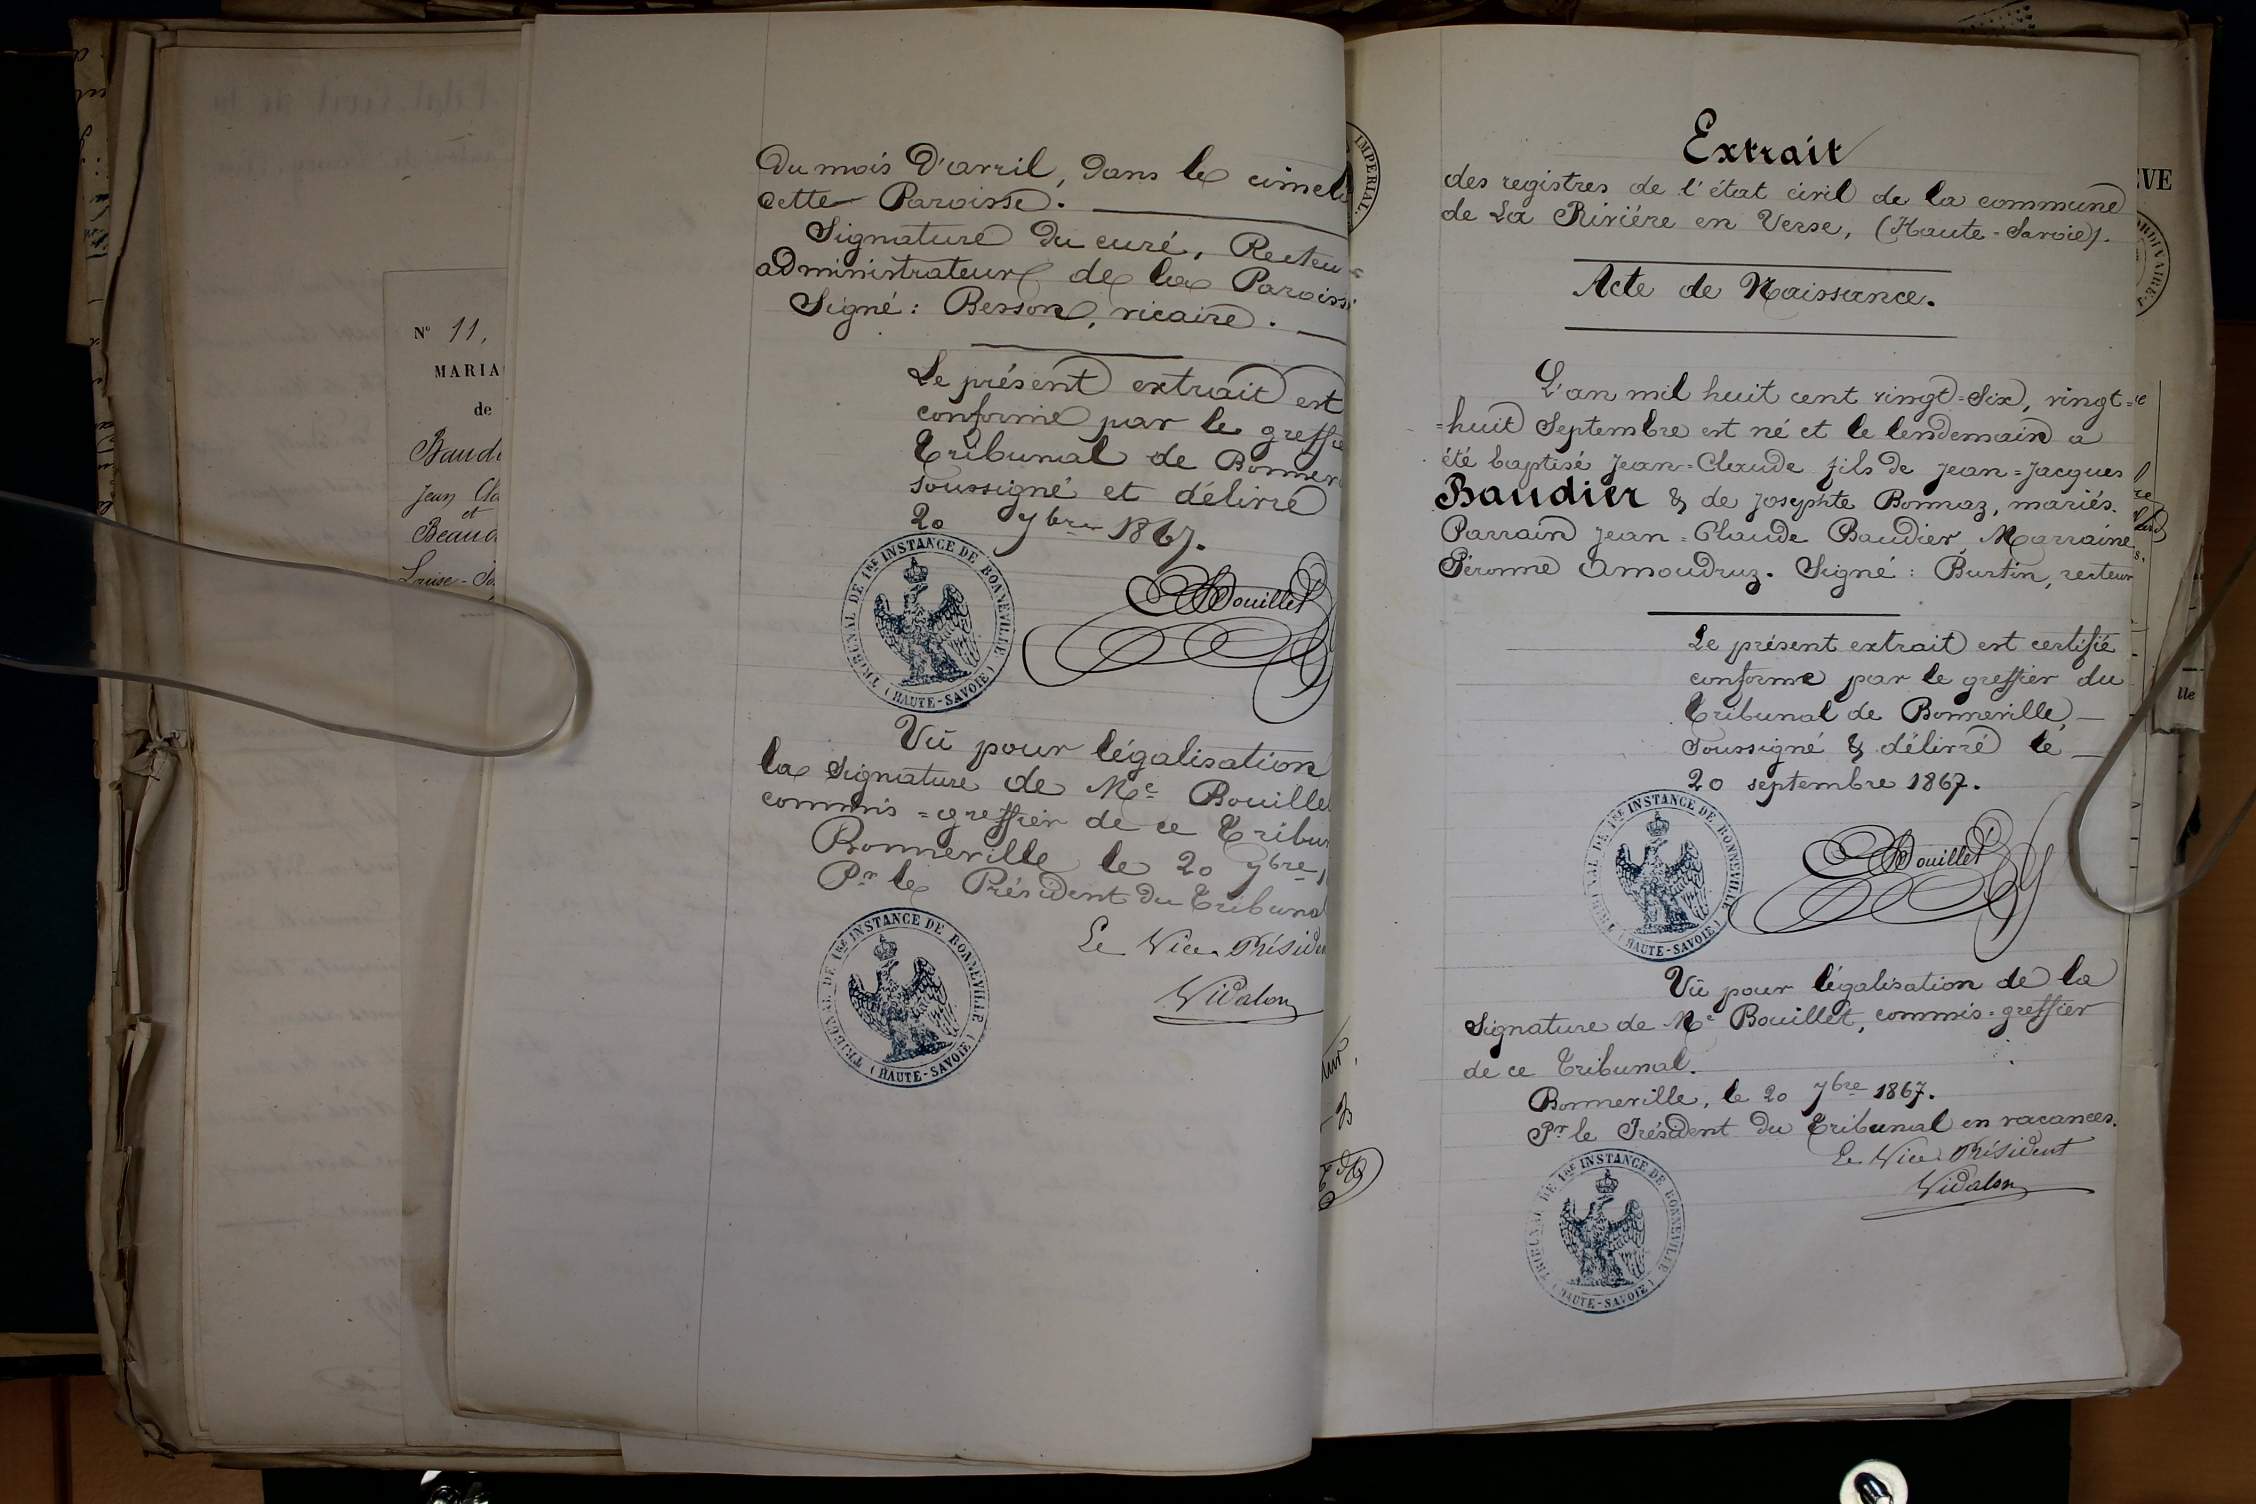 N° 11,
MARIA
de
Jean Cla
et
Louise-Jo
du mois d'avril, dans le cimet
cette Paroisse.
Signature du curé, Recteu
administrateur de la Paroiss
Signé: Besson, vicaire.
Le présent extrait est
conforme par le greffie
Tribunal de Bonnev
soussigné et délivré
20 7bre 1867.
Bouillet
TRIBUNAL DE 1RE INSTANCE DE BONNEVILLE (HAUTE-SAVOIE)
Vû pour légalisation
la signature de Me Bouille
commis=greffier de ce Tribun
Bonneville le 20 7bre 1
Pr le Président du Tribuna
Le Vice-Présiden
Vidalon
TRIBUNAL DE 1RE INSTANCE DE BONNEVILLE (HAUTE-SAVOIE)
IMPERIAL.
Extrait
des registres de l'état civil de la commune
de La Rivière en Verse, (Haute-Savoie).
Acte de Naissance.
L'an mil huit cent vingt=six, vingt=
=huit Septembre est né et le lendemain a
été baptisé Jean=Claude fils de Jean=Jacques
Baudier & de Josephte Bonnaz, mariés.
Parrain Jean=Claude Baudier, Marraine
Péronne Amoudruz. Signé: Burtin, recteur
Le présent extrait est certifié
conforme par le greffier du
Tribunal de Bonneville,
soussigné & délivré le
20 septembre 1867.
Bouillet
TRIBUNAL DE 1RE INSTANCE DE BONNEVILLE (HAUTE-SAVOIE)
Vû pour légalisation de la
Signature de Me Bouillet, commis=greffier
de ce Tribunal.
Bonneville, le 20 7bre 1867.
Pr le Président du Tribunal en vacances.
Le Vice-Président
Vidalon
TRIBUNAL DE 1RE INSTANCE DE BONNEVILLE (HAUTE-SAVOIE)
VE
ORDINAIRE
lle